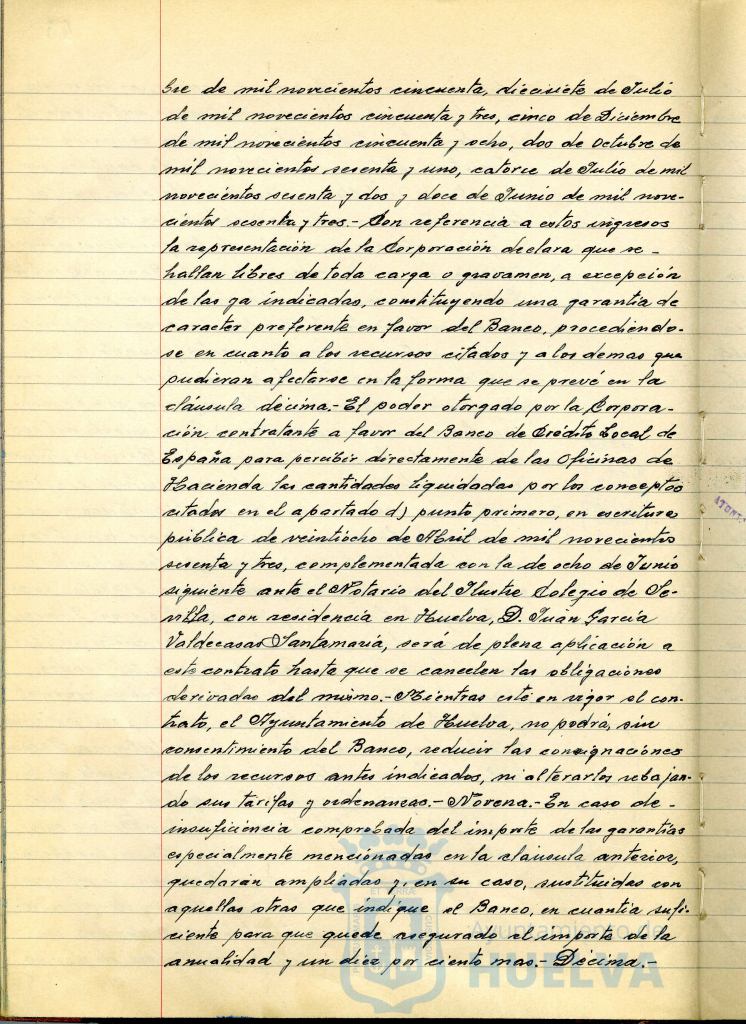 bre de mil novecientos cincuenta, diecisiete de Julio
de mil novecientos cincuenta y tres, cinco de Diciembre
de mil novecientos cincuenta y ocho, dos de Octubre de
mil novecientos sesenta y uno, catorce de Julio de mil
novecientos sesenta y dos y doce de Junio de mil nove-
cientos sesenta y tres.- Con referencia a estos ingresos
la representación de la Corporación declara que se -
hallan libres de toda carga o gravamen, a excepción
de las ya indicadas, constituyendo una garantía de
caracter preferente en favor del Banco, procediendo-
se en cuanto a los recursos citados y a los demas que
pudieran afectarse en la forma que se prevé en la
cláusula décima.- El poder otorgado por la Corpora-
ción contratante a favor del Banco de Crédito Local de
España para percibir directamente de las Oficinas de
Hacienda las cantidades liquidadas por los conceptos
citados en el apartado d) punto primero, en escritura
pública de veintiocho de Abril de mil novecientos
sesenta y tres, complementada con la de ocho de Junio
siguiente ante el Notario del Ilustre Colegio de Se-
villa, con residencia en Huelva, D. Juan García
Valdecasas Santamaría, será de plena aplicación a
este contrato hasta que se cancelen las obligaciones
derivadas del mismo.- Mientras esté en vigor el con-
trato, el Ayuntamiento de Huelva, no podrá, sin
consentimiento del Banco, reducir las consignaciones
de los recursos antes indicados, ni alterarlos rebajan-
do sus tarifas y ordenanzas.- Novena.- En caso de -
insuficiencia comprobada del importe de las garantías
especialmente mencionadas en la cláusula anterior,
quedarán ampliadas y, en su caso, sustituidas con
aquellas otras que indique el Banco, en cuantía sufi-
ciente para que quede asegurado el importe de la
anualidad y un diez por ciento mas.- Décima.-
Ayuntamiento de
HUELVA